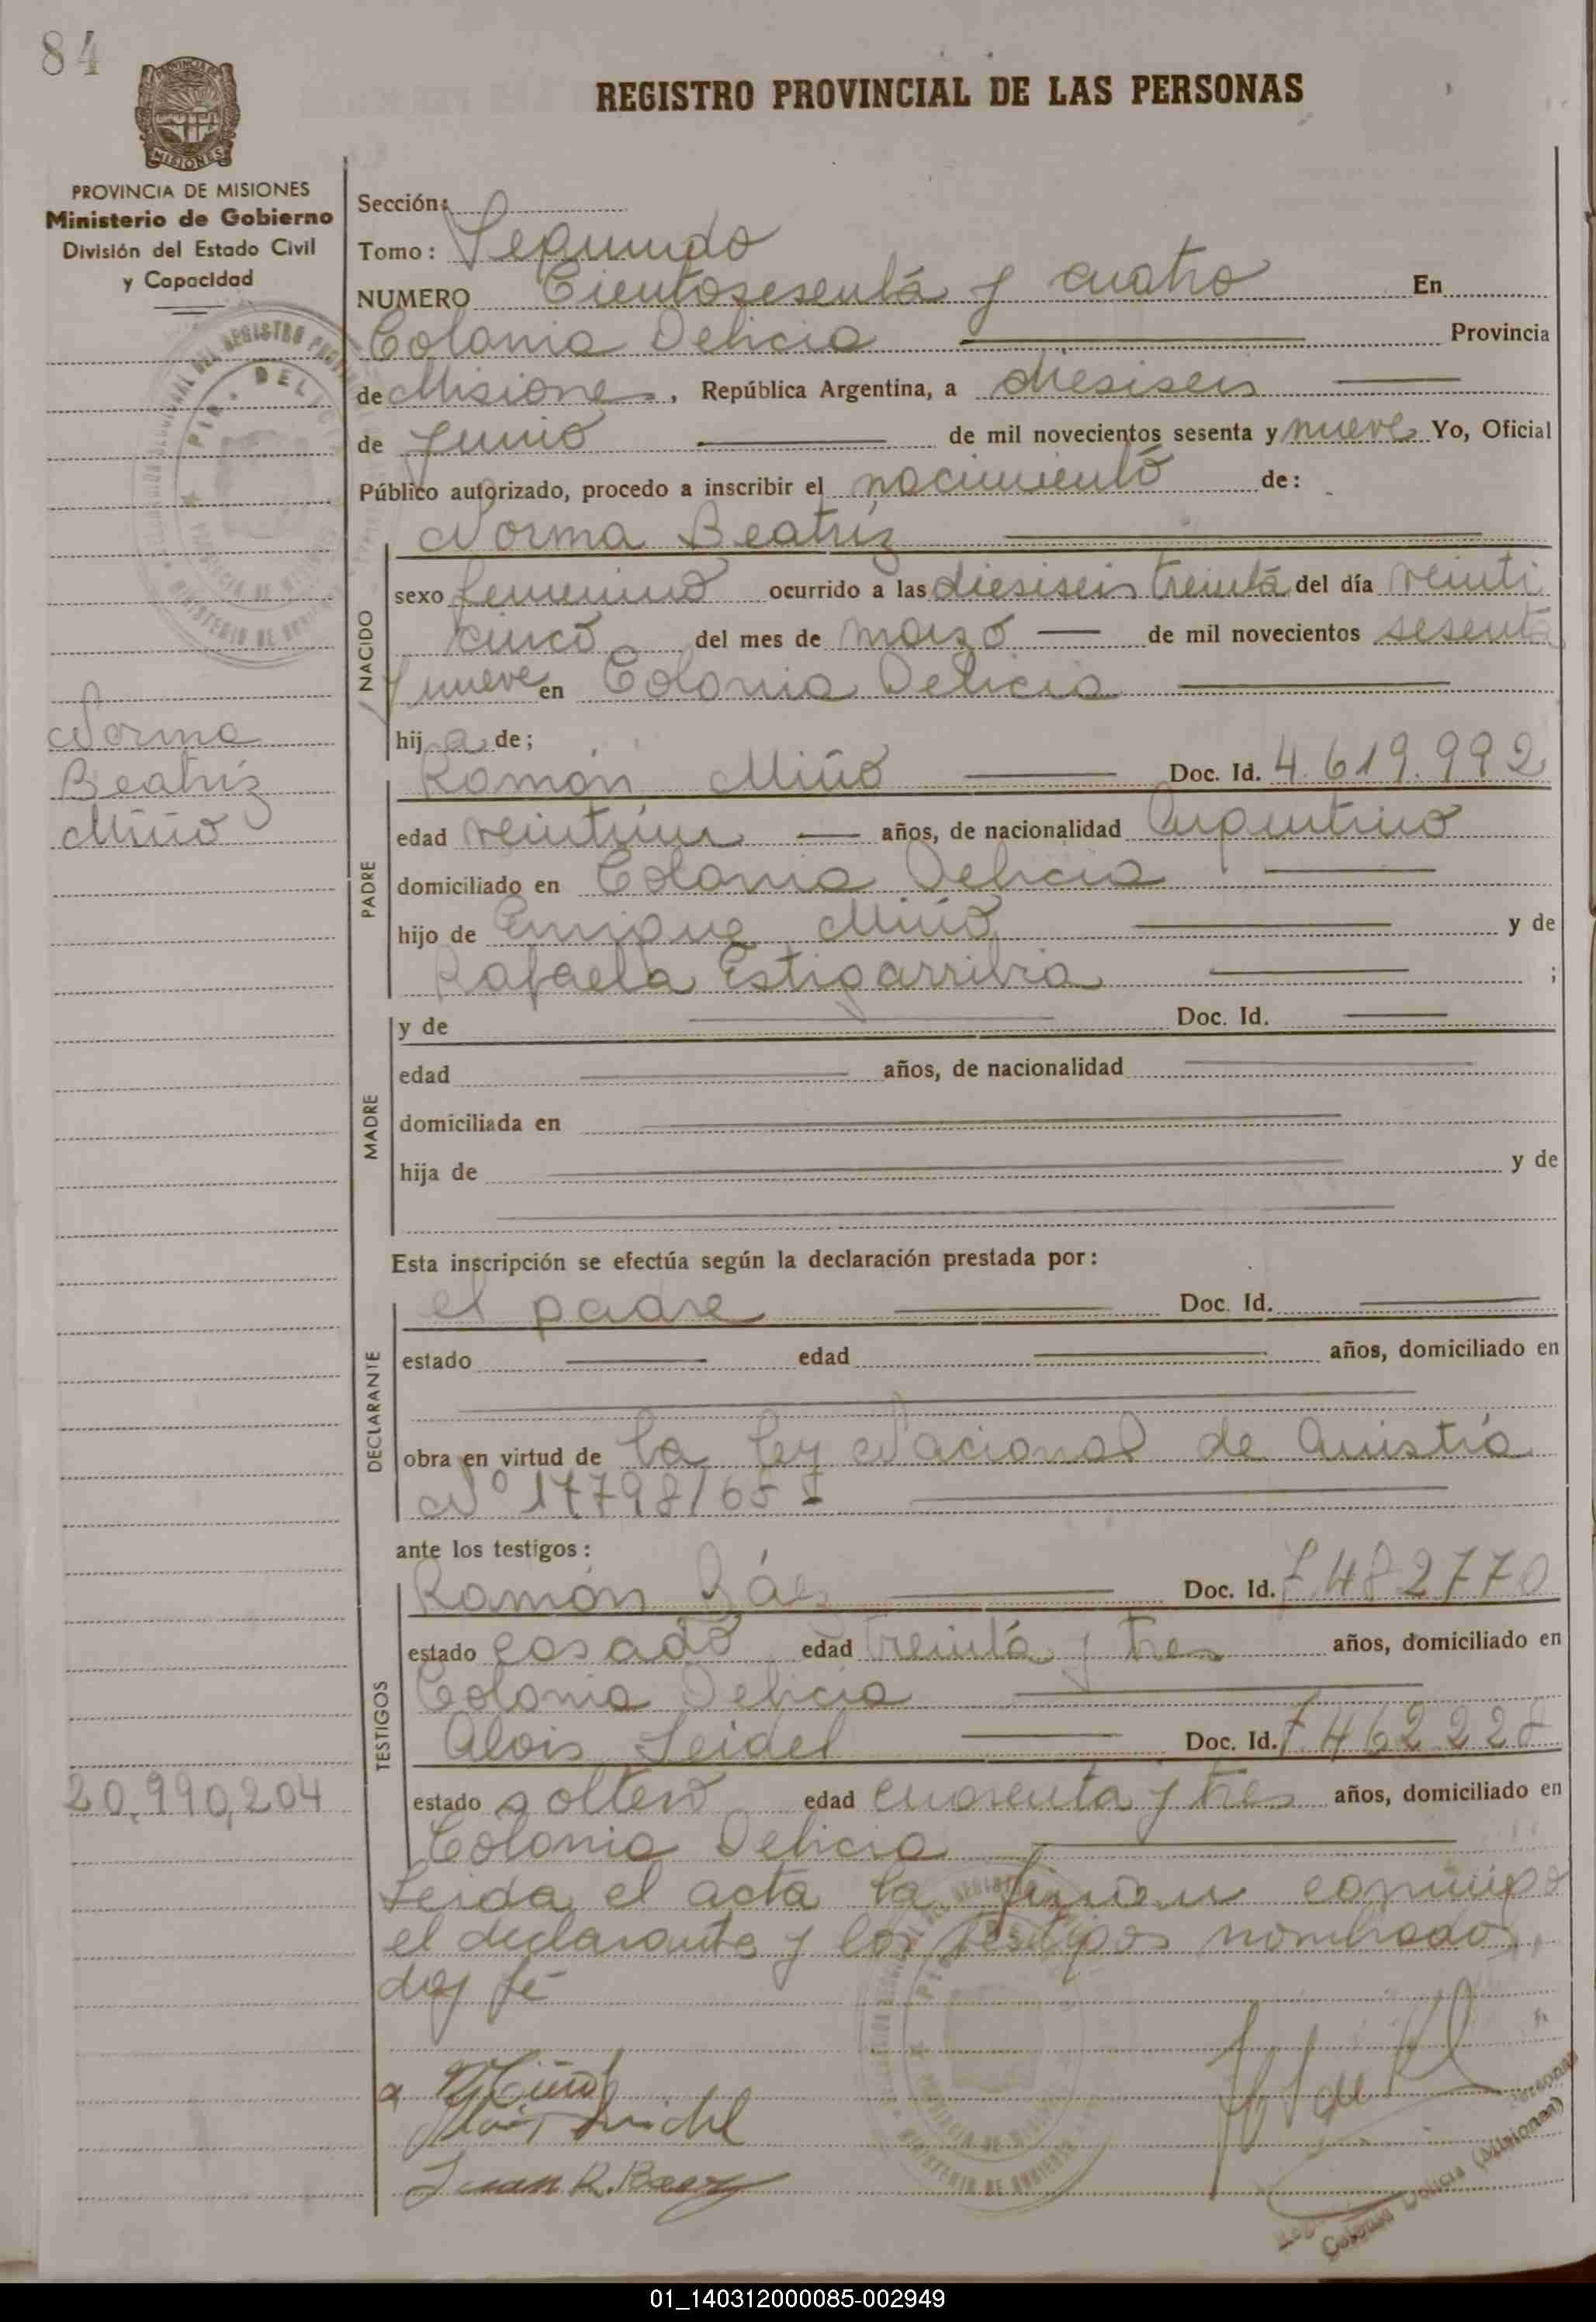 84
PROVINCIA DE MISIONES
Ministerio de Gobierno
División del Estado Civil
y Capacidad
REGISTRO PROVINCIAL DE LAS PERSONAS
Sección:
Tomo: Segundo
NUMERO Cientosesenta y cuatro En
Colonia Delicia Provincia
de Misiones, República Argentina, a diesiseis
de Junio de mil novecientos sesenta y nueve Yo, Oficial
Público autorizado, procedo a inscribir el nacimiento de:
Norma Beatríz
NACIDO
sexo femenino ocurrido a las diesiseis treinta del día veinti
cinco del mes de marzo de mil novecientos sesenta
y nueve en Colonia Delicia
hij a de;
Norma
Beatríz
Miño
PADRE
Ramón Miño Doc. Id. 4.619.992
edad años, de nacionalidad Argentino
domiciliado en Colonia Delicia
hijo de Enrique Miño y de
Rafaela Estigarribia ;
MADRE
y de Doc. Id.
edad años, de nacionalidad
domiciliada en
hija de y de
Esta inscripción se efectúa según la declaración prestada por:
DECLARANTE
el padre Doc. Id.
estado edad años, domiciliado en
obra en virtud de la Ley Nacional de Anistía
Nº 17.798/68
ante los testigos:
TESTIGOS
Ramón Báes Doc. Id. 7.482770
estado casado edad treinta y tres años, domiciliado en
Colonia Delicia
Alois Seidel Doc. Id. 7.462228
estado soltero edad cuarenta y tres años, domiciliado en
Colonia Delicia
20,990,204
Leida el acta la firman conmigo
el declarante y los testigos nombrados,
doy fé
Miño
Alois Seidel
Juan R. Baez
Colonia Delicia (Misiones)
01_140312000085-002949